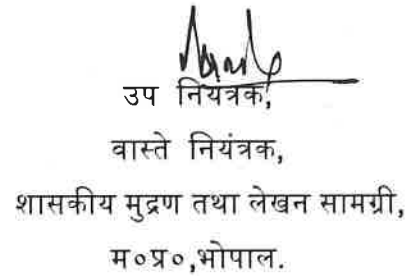 उप नियंत्रक,
वास्ते नियंत्रक,
शासकीय मुद्रण तथा लेखन सामग्री,
म०प्र०,भोपाल.